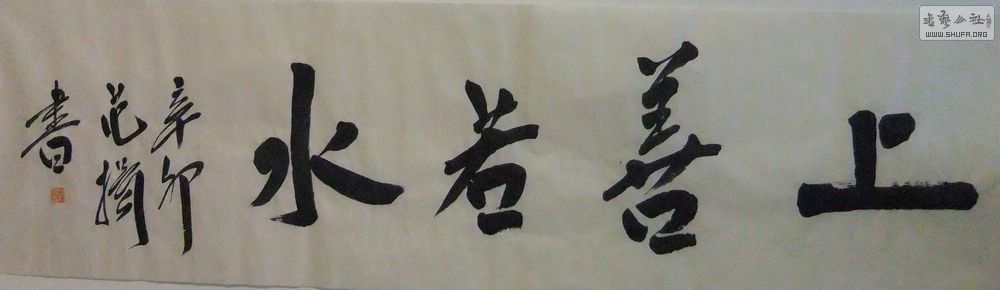 上善若水
辛卯
范
書
書藝公社
WWW.SHUFA.ORG